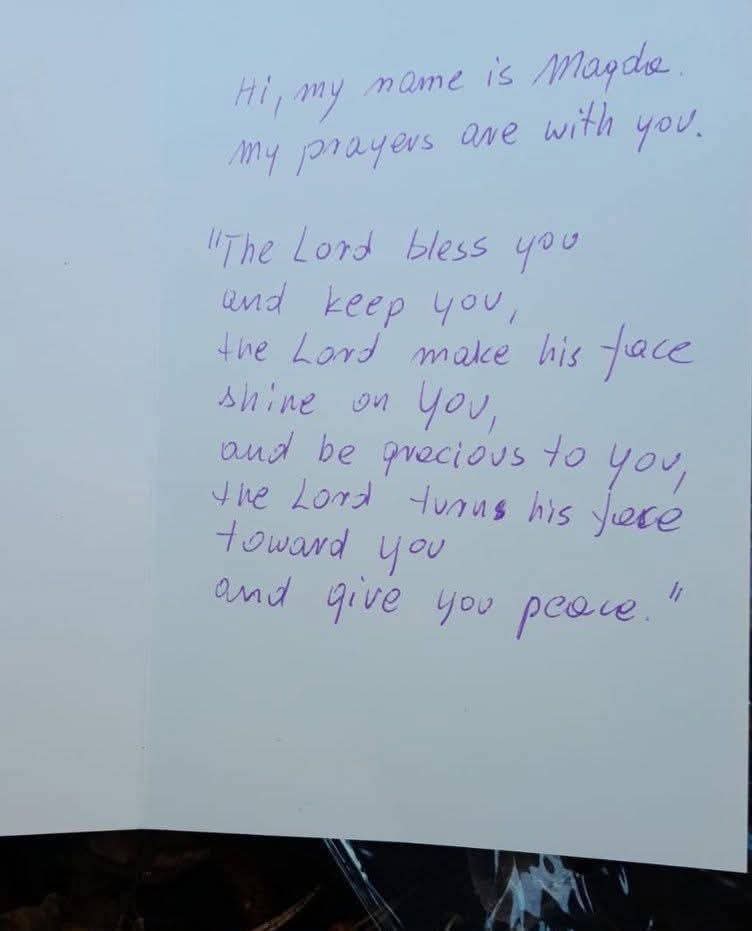 Hi, my name is Magda.
my prayers are with you.
"The Lord bless you
and keep you,
the Lord make his face
shine on you,
and be gracious to you,
the Lord turns his face
toward you
and give you peace."